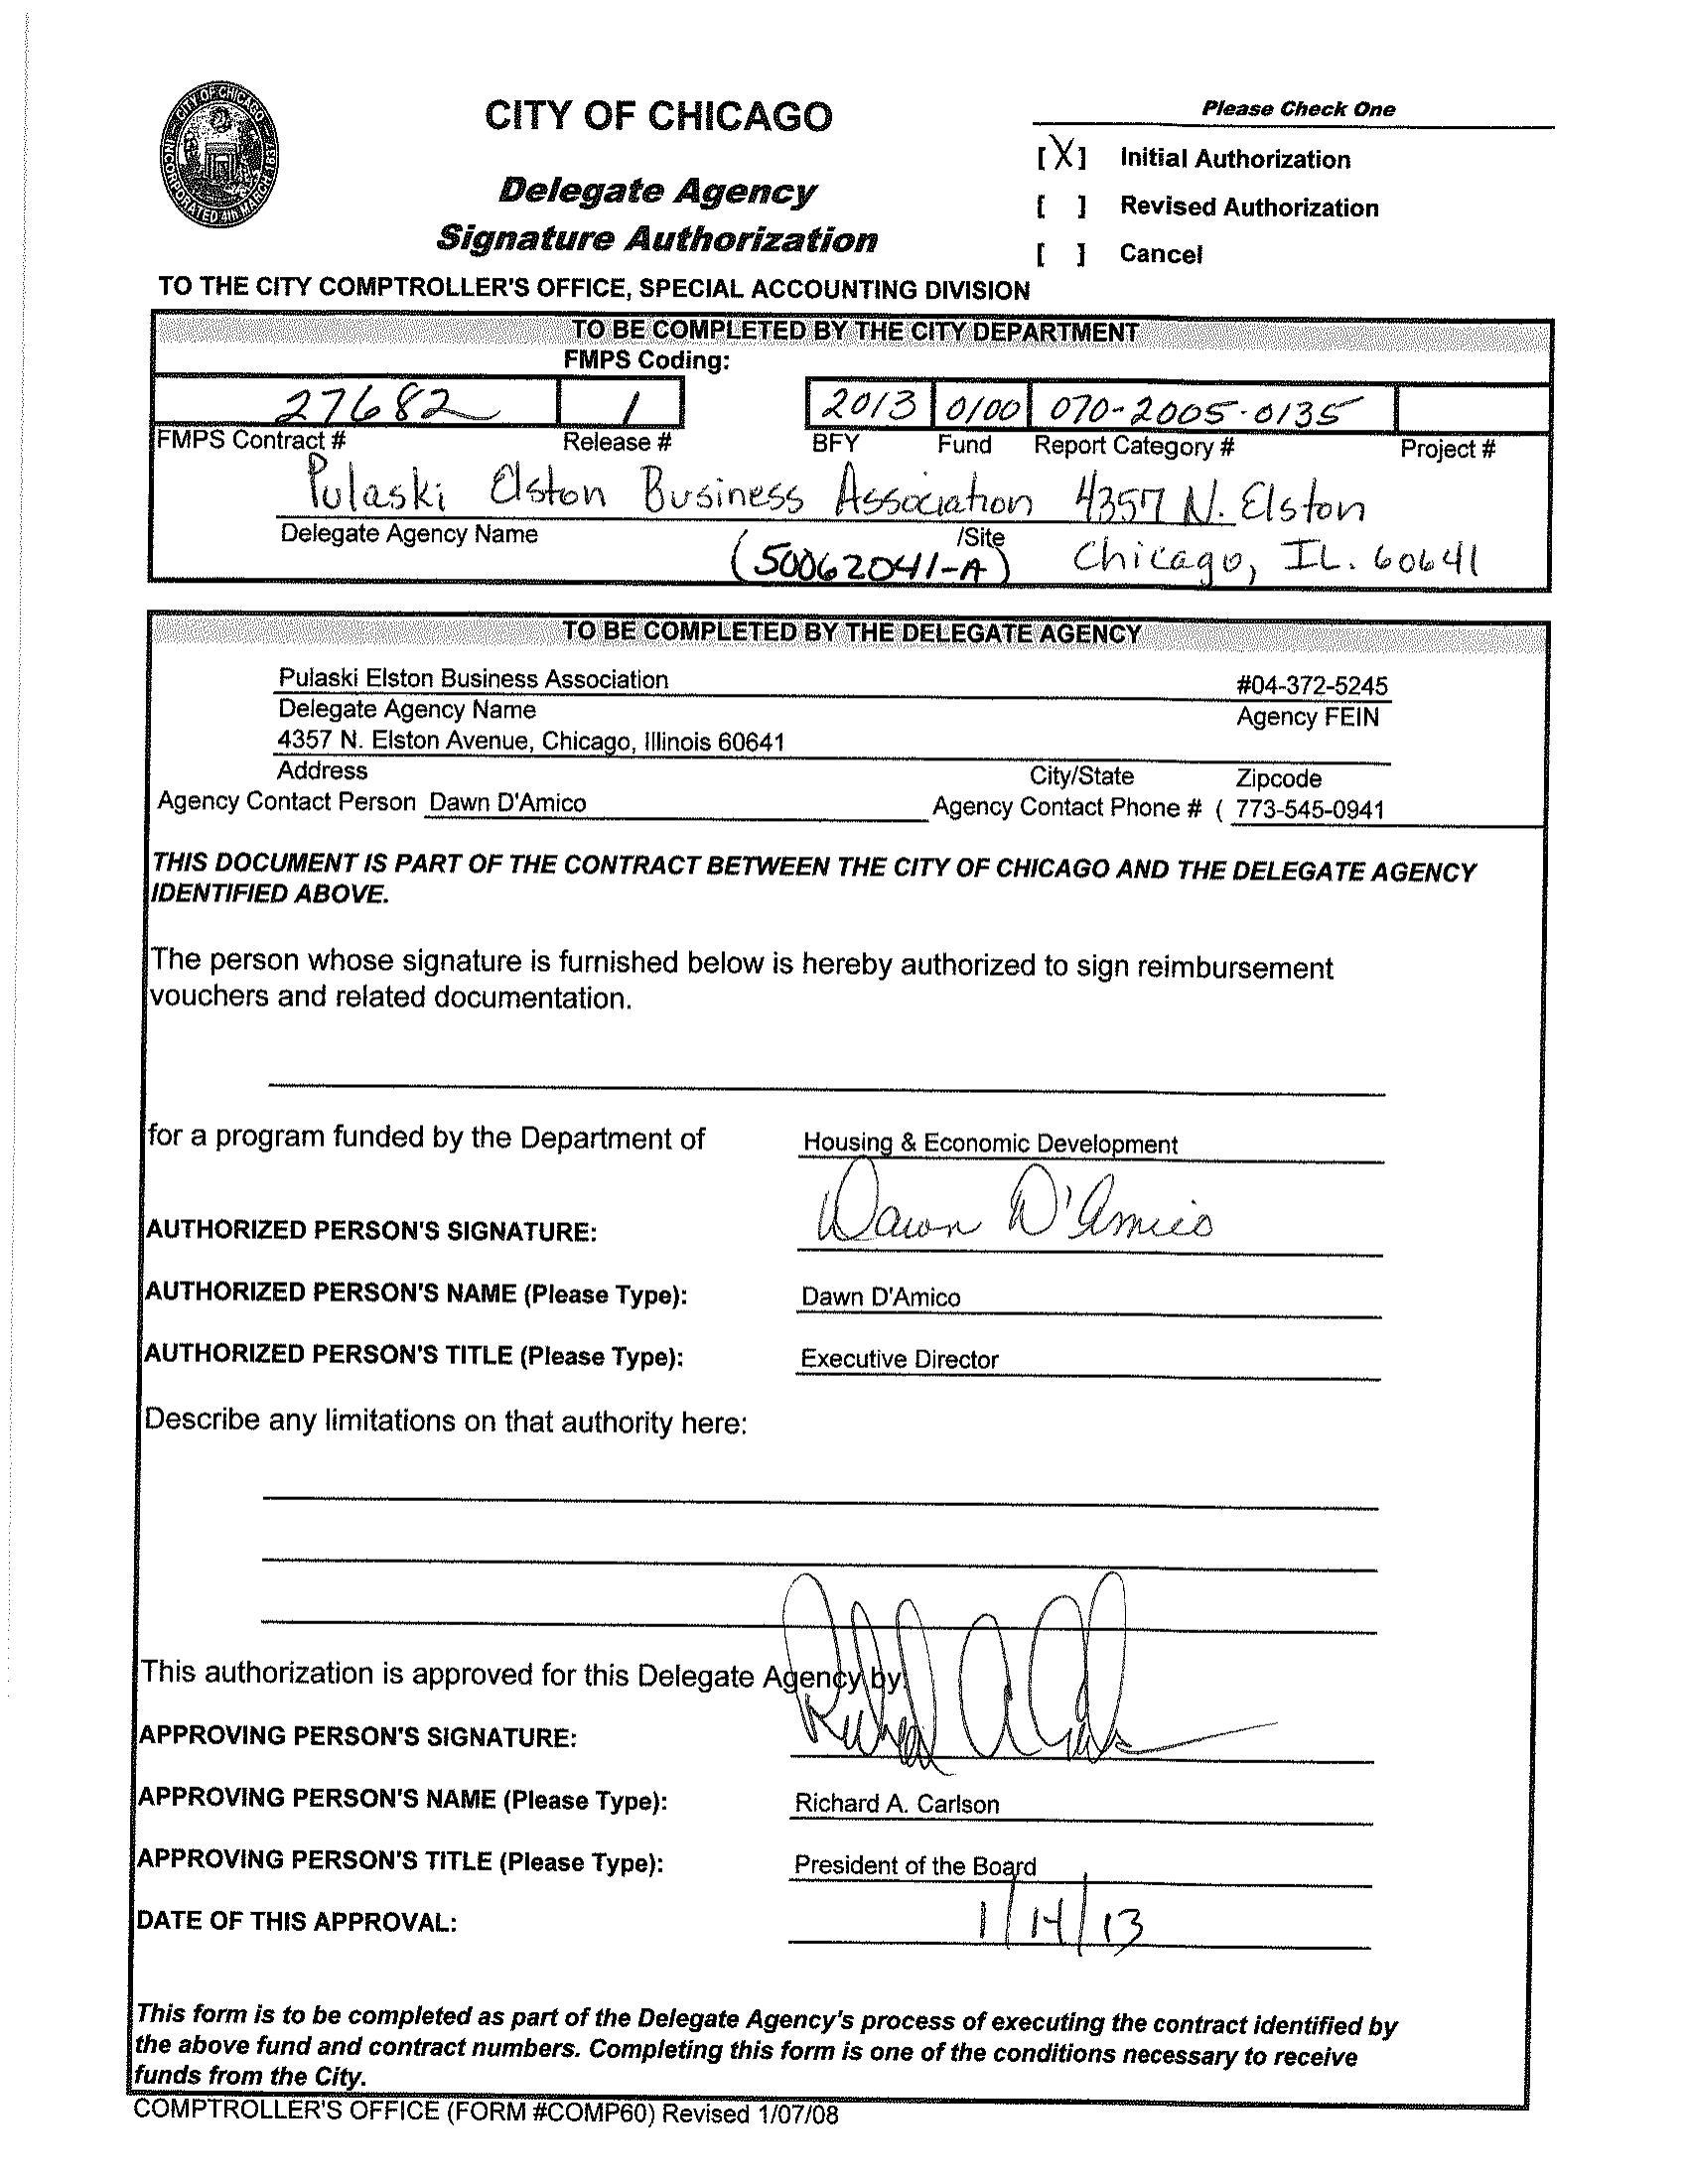 CITY OF CHICAGO
INCORPORATED 4th MARCH 1837
CITY OF CHICAGO
Delegate Agency
Signature Authorization
Please Check One
[X] Initial Authorization
[ ] Revised Authorization
[ ] Cancel
TO THE CITY COMPTROLLER'S OFFICE, SPECIAL ACCOUNTING DIVISION
TO BE COMPLETED BY THE CITY DEPARTMENT
FMPS Coding:
27682 1 2013 0100 070-2005-0135
FMPS Contract # Release # BFY Fund Report Category # Project #
Pulaski Elston Business Association 4357 N. Elston
Delegate Agency Name /Site
(50062041-A) Chicago, IL. 60641
TO BE COMPLETED BY THE DELEGATE AGENCY
Pulaski Elston Business Association #04-372-5245
Delegate Agency Name Agency FEIN
4357 N. Elston Avenue, Chicago, Illinois 60641
Address City/State Zipcode
Agency Contact Person Dawn D'Amico Agency Contact Phone # ( 773-545-0941
THIS DOCUMENT IS PART OF THE CONTRACT BETWEEN THE CITY OF CHICAGO AND THE DELEGATE AGENCY
IDENTIFIED ABOVE.
The person whose signature is furnished below is hereby authorized to sign reimbursement
vouchers and related documentation.
for a program funded by the Department of Housing & Economic Development
AUTHORIZED PERSON'S SIGNATURE: Dawn D'Amico
AUTHORIZED PERSON'S NAME (Please Type): Dawn D'Amico
AUTHORIZED PERSON'S TITLE (Please Type): Executive Director
Describe any limitations on that authority here:
This authorization is approved for this Delegate Agency by:
APPROVING PERSON'S SIGNATURE:
APPROVING PERSON'S NAME (Please Type): Richard A. Carlson
APPROVING PERSON'S TITLE (Please Type): President of the Board
DATE OF THIS APPROVAL: 1/14/13
This form is to be completed as part of the Delegate Agency's process of executing the contract identified by
the above fund and contract numbers. Completing this form is one of the conditions necessary to receive
funds from the City.
COMPTROLLER'S OFFICE (FORM #COMP60) Revised 1/07/08